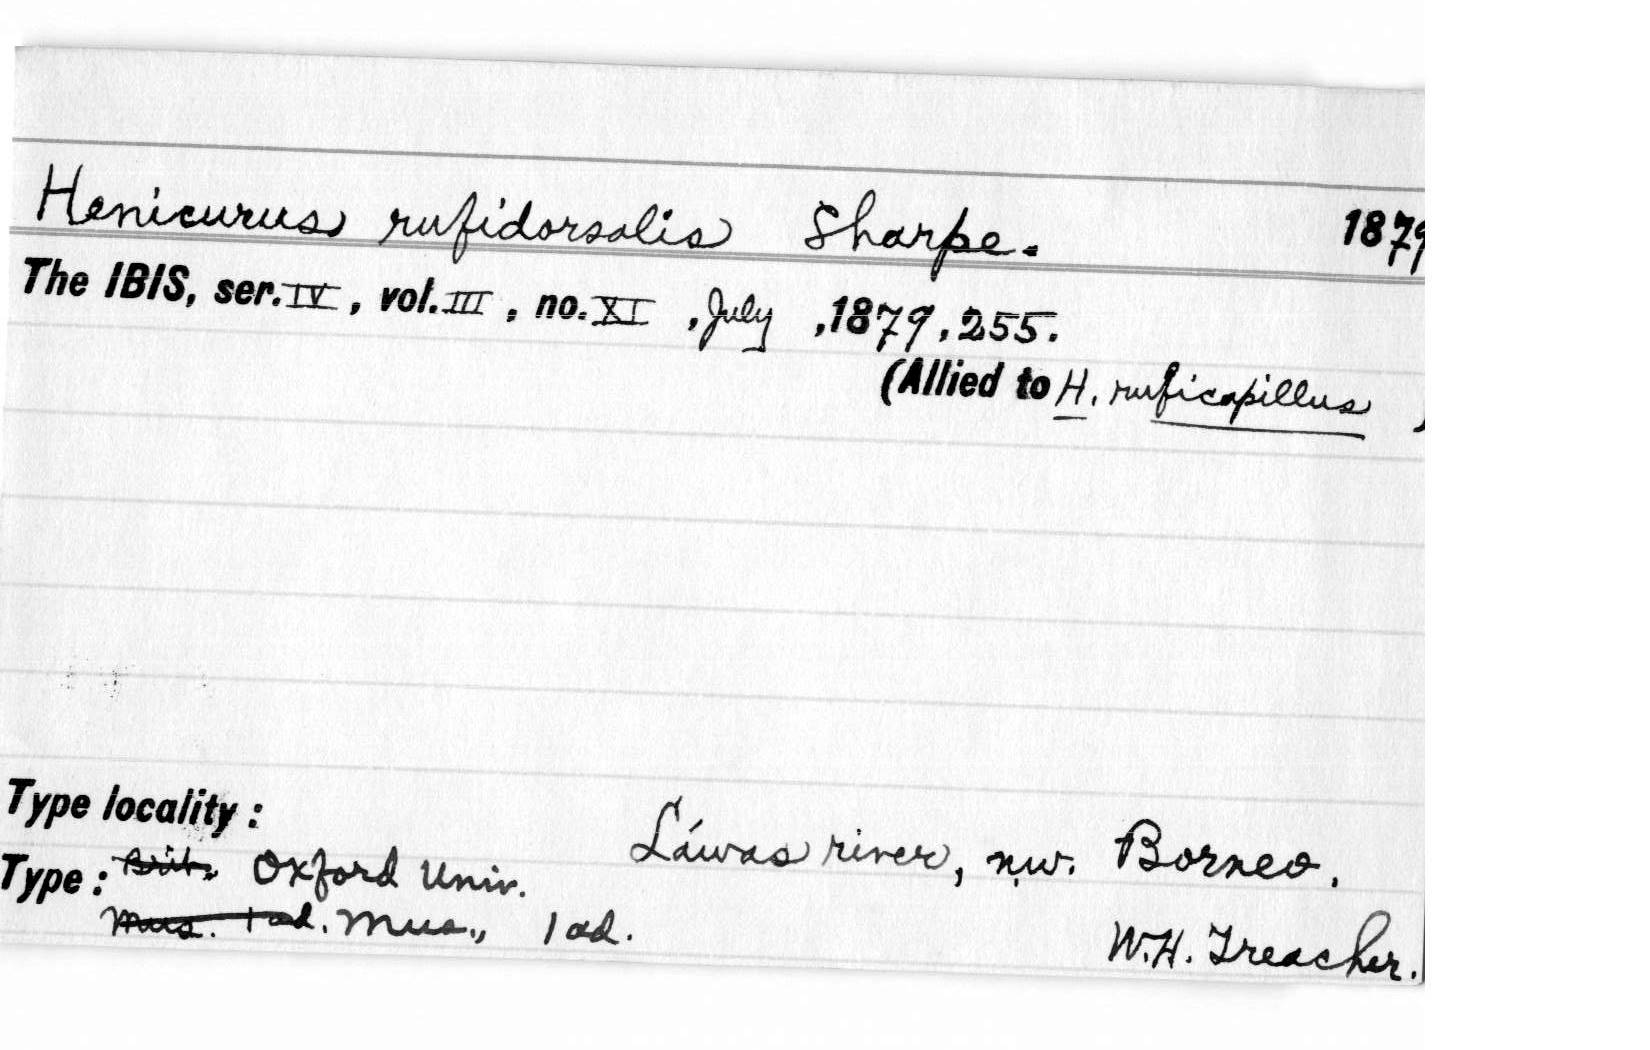 Henicurus rufidorsalis Sharpe. 1879
The IBIS, ser. IV, vol. III, no. XI, July, 1879, 255.
(Allied to H. ruficapillus )
Type locality:
Láwas river, n.w. Borneo.
Type: Brit. Oxford Univ.
Mus. 1 ad. Mus., 1 ad.
W.H. Treacher.